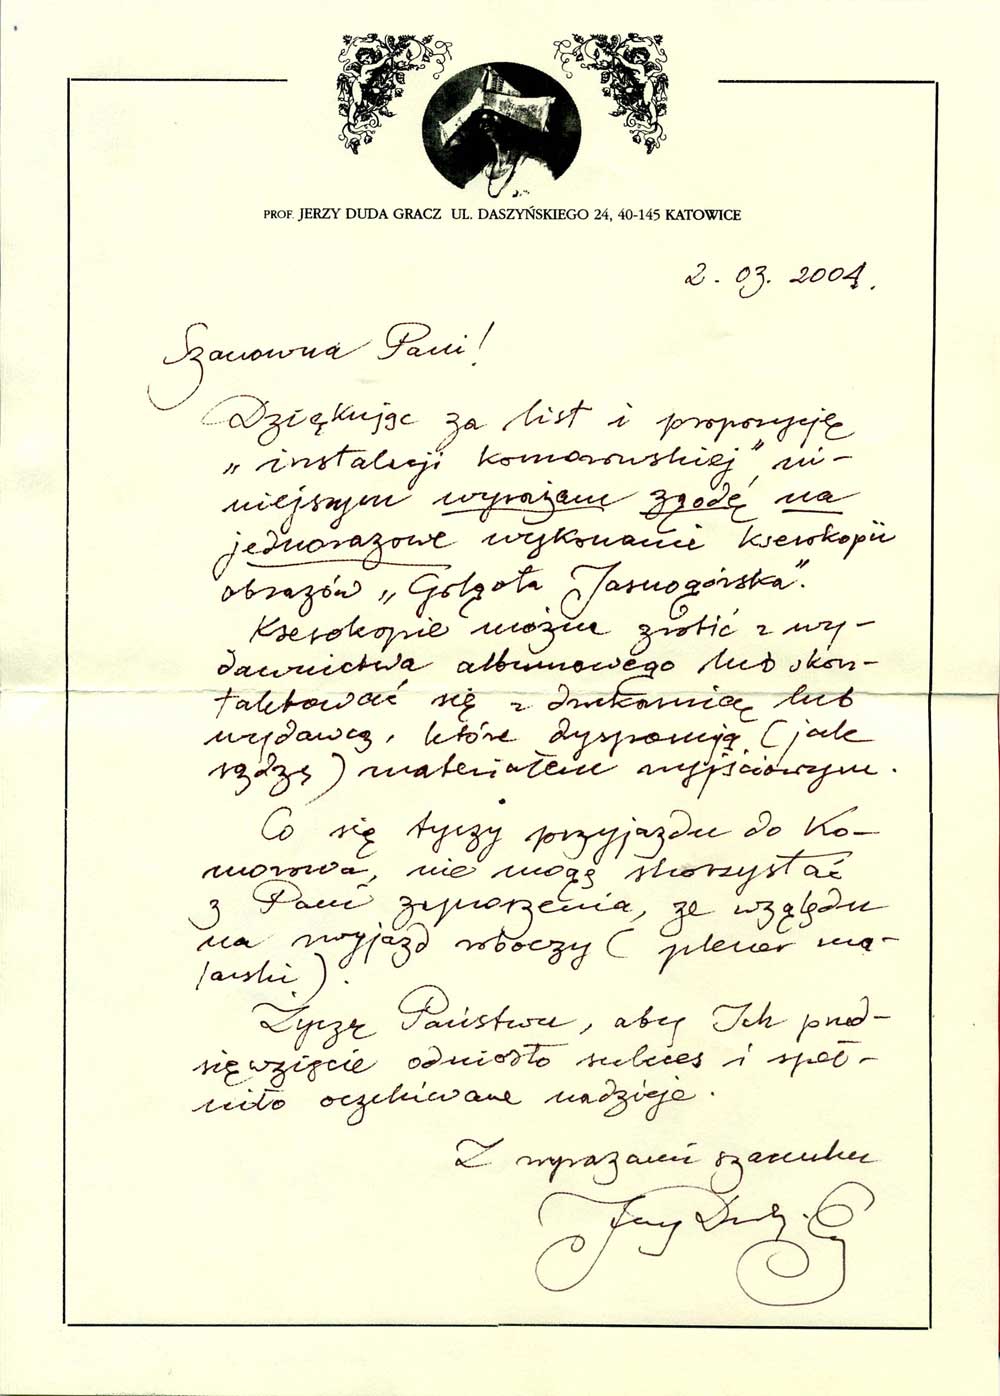 PROF. JERZY DUDA GRACZ UL. DASZYŃSKIEGO 24, 40-145 KATOWICE
2. 03. 2004.
Szanowna Pani!
Dziękując za list i propozycję
„instalacji komorowskiej" ni-
niejszym wyrażam zgodę na
jednorazowe wykonanie kserokopii
obrazów „Golgota Jasnogórska".
Kserokopie można zrobić z wy-
dawnictwa albumowego lub skon-
taktować się z drukarnią lub
wydawcą, które dysponują (jak
sądzę) materiałem wyjściowym.
Co się tyczy przyjazdu do Ko-
morowa, nie mogę skorzystać
z Pani zaproszenia, ze względu
na wyjazd roboczy (plener ma-
larski).
Życzę Państwu, aby Ich przed-
sięwzięcie odniosło sukces i speł-
niło oczekiwane nadzieje.
Z wyrazami szacunku
Jerzy Duda-G